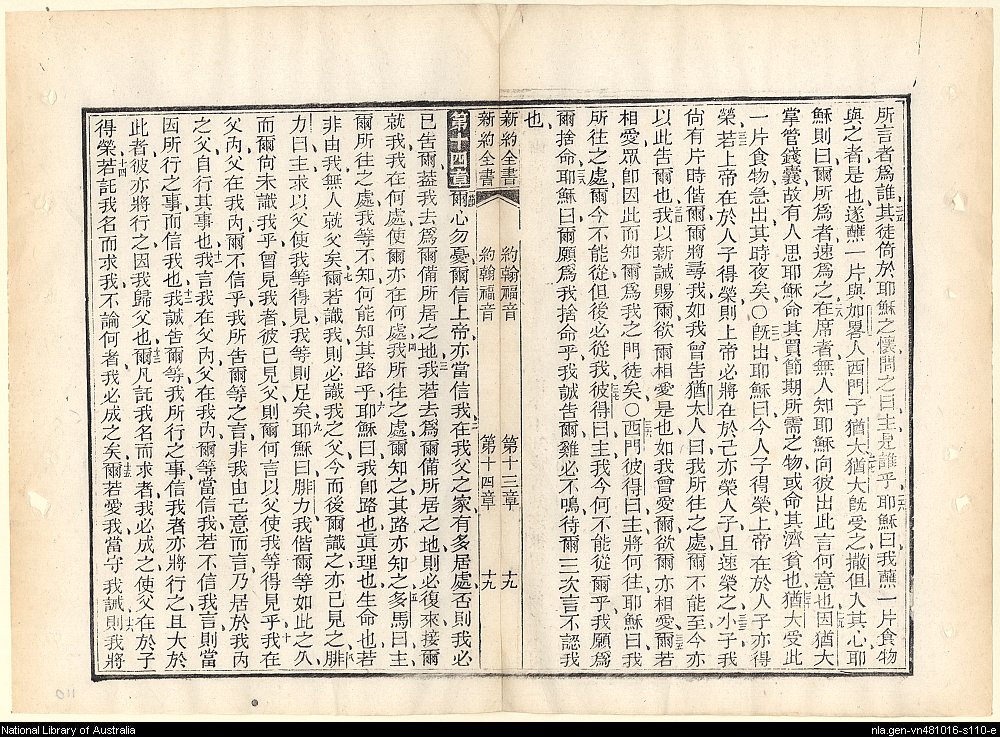 所言者爲誰其徒倚於耶穌之懷問之曰主是誰乎耶穌曰我蘸一片食物
與之者是也遂蘸一片與加畧人西門子猶大猶大旣受之撒但入其心耶
穌則曰爾所爲者速爲之在席者無人知耶穌向彼出此言何意也因猶大
掌管錢囊故有人思耶穌命其買節期所需之物或命其濟貧也猶大受此
一片食物急出其時夜矣〇旣出耶穌曰今人子得榮上帝在於人子亦得
榮若上帝在於人子得榮則上帝必將在於己亦榮人子且速榮之小子我
尙有片時偕爾爾將尋我如我曾吿猶太人曰我所往之處爾不能至今亦
以此吿爾也我以新誡賜爾欲爾相愛是也如我曾愛爾欲爾亦相愛爾若
相愛眾卽因此而知爾爲我之門徒矣〇西門彼得曰主將何往耶穌曰我
所往之處爾今不能從但後必從我彼得曰主我今何不能從爾乎我願爲
爾捨命耶穌曰爾願爲我捨命乎我誠吿爾雞必不鳴待爾三次言不認我
也
新約全書 約翰福音 第十三章 十九
新約全書 約翰福音 第十四章 十九
第十四章 爾心勿憂爾信上帝亦當信我在我父之家有多居處否則我必
已吿爾葢我去爲爾備所居之地我若去爲爾備所居之地則必復來接爾
就我我在何處使爾亦在何處我所往之處爾知之其路亦知之多馬曰主
爾所往之處我等不知何能知其路乎耶穌曰我卽路也眞理也生命也若
非由我無人就父矣爾若識我則必識我之父今而後爾識之亦已見之腓
力曰主求以父使我等得見我等則足矣耶穌曰腓力我偕爾等如此之久
而爾尙未識我乎曾見我者彼已見父則爾何言以父使我等得見乎我在
父內父在我內爾不信乎我所吿爾等之言非我由己意而言乃居於我內
之父自行其事也我言我在父內父在我內爾等當信我若不信我言則當
因所行之事而信我也我誠吿爾等我所行之事信我者亦將行之且大於
此者彼亦將行之因我歸父也爾凡託我名而求者我必成之使父在於子
得榮若託我名而求我不論何者我必成之矣爾若愛我當守我誡則我將
011
National Library of Australia
nla.gen-vn481016-s110-e